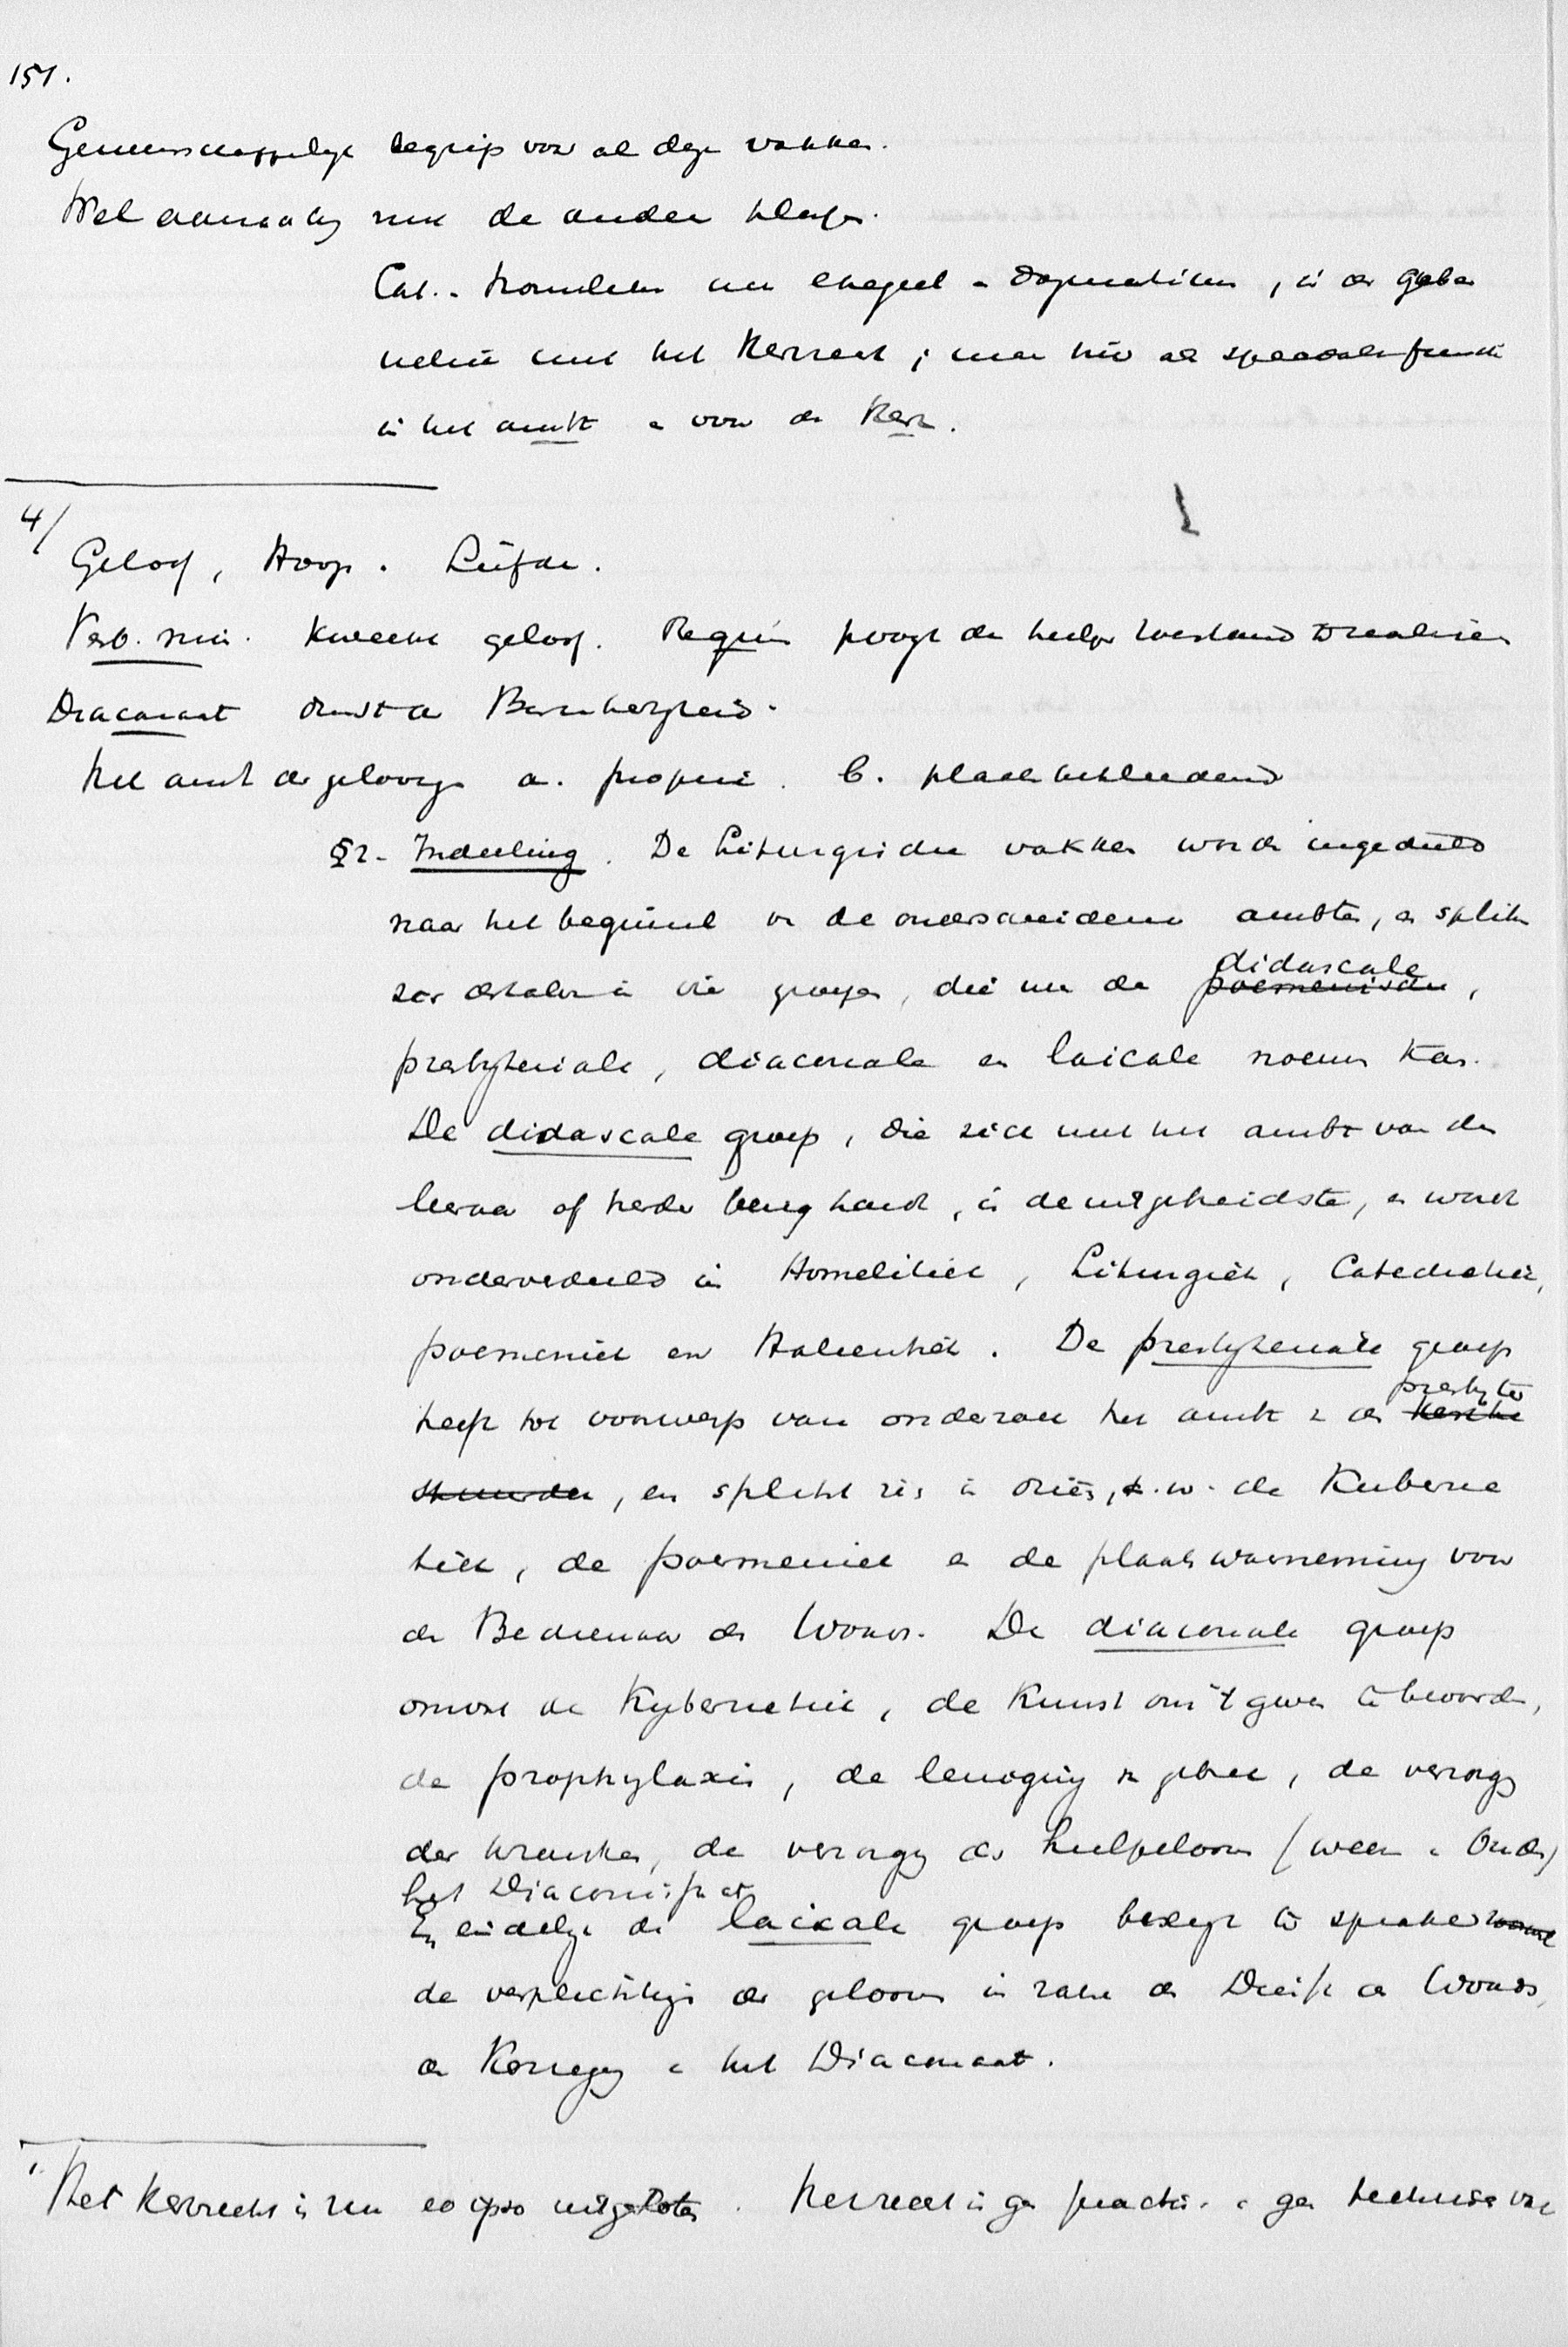 151.
Gemeenschappelyk begrip voor al deze vakken.
Wel aanraking met de andere
Cat. - Homiletiek met exegese - Dogmatiek, in de
met het Kerkrecht; maar hier als speciale functie
in het ambt en voor de Kerk.
4/
Geloof, Hoop. Liefde.
Verb. min. kweekt geloof. Regim. poogt den heilige toestand te realiseren
Diaconaat dienst der Barmhartigheid.
Het ambt der geloovigen a. proprie. b. plaatsbekleedend
§2. Indeeling. De Liturgische vakken worden ingedeeld
naar het beginsel van de onderscheidene ambten, en splitsen
zich derhalve in vier groepen, die men de poemenische didascale,
presbyteriale, diaconale en laicale noemen kan.
De didascale groep, die zich met het ambt van den
leeraar of herder bezig houdt, is de uitgebreidste, en wordt
onderverdeeld in Homiletiek, Liturgiek, Catechetiek,
poemeniek en Halieutiek. De presbyteriale groep
heeft tot voorwerp van onderzoek het ambt van den presbyter
, en splitst zich in drieën, t.w. de Kuberne
tiek, de poemeniek en de plaatswaarneming voor
den Bedienaar des Woords. De diaconale groep
omvat de Kybernetiek, de Kunst om 't geven te bevorderen,
de prophylaxis, de leniging van gebrek, de verzorging
der kranken, de verzorging der hulpeloozen (weezen en Ouden)
het Diaconissaat
En eindelyk de laicale groep bezigt te spreken
de verplichting der geloovigen in zake den Dienst des Woords,
de Kerkregeering en het Diaconaat.
1. Het Kerkrecht is nu eo ipso uitgesloten. Kerkrecht is geen practijk en geen techniek van